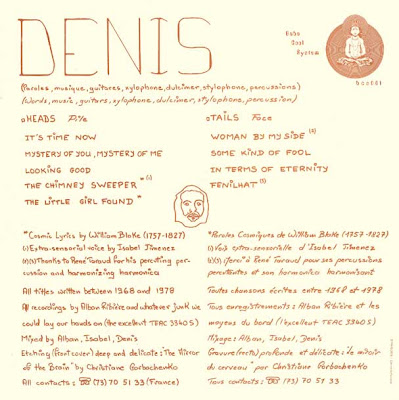 DENIS
Baba
Bool
System
baa001
(Paroles, musique, guitares, xylophone, dulcimer, stylophone, percussions)
(Words, music, guitars, xylophone, dulcimer, stylophone, percussion)
HEADS Pile
IT'S TIME NOW
MYSTERY OF YOU, MYSTERY OF ME
LOOKING GOOD
THE CHIMNEY SWEEPER" (1)
THE LITTLE GIRL FOUND "
TAILS Face
WOMAN BY MY SIDE (2)
SOME KIND OF FOOL
IN TERMS OF ETERNITY
FENILHAT (3)
"Cosmic Lyrics by William Blake (1757-1827)
(1) Extra-sensorial voice by Isabel Jimenez
(2)(3) Thanks to René Taraud for his percuting per-
cussion and harmonizing harmonica
All titles written between 1968 and 1978
All recordings by Alban Ribière and whatever junk we
could lay our hands on (the excellent TEAC 3340S)
Mixed by Alban, Isabel, Denis
Etching (front cover) deep and delicate: "The Mirror
of the Brain" by Christiane Gorbachenko
All contacts: ☎ (73) 70 51 33 (France)
"Paroles Cosmiques de William Blake (1757-1827)
(1) Voix extra-sensorielle d'Isabel Jimenez
à René Taraud pour ses percussions
percutantes et son harmonica harmonisant
Toutes chansons écrites entre 1968 et 1978
Tous enregistrements: Alban Ribière et les
moyens du bord (l'excellent TEAC 3340S)
Mixage: Alban, Isabel, Denis
Gravure (recto) profonde et délicate: "Le miroir
du cerveau" par Christiane Gorbachenko
Tous contacts: ☎ (73) 70 51 33